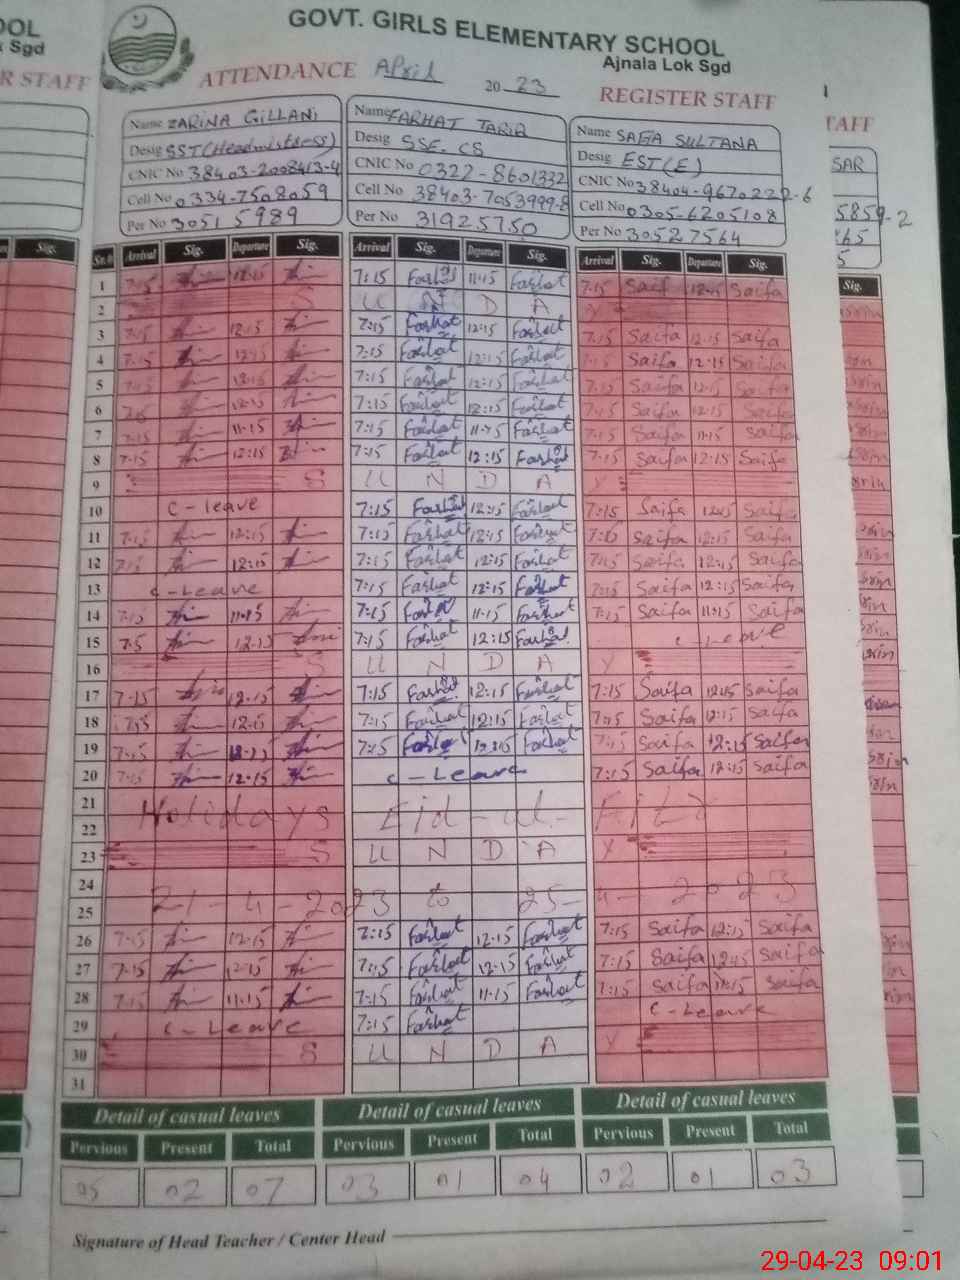 GOVT. GIRLS ELEMENTARY SCHOOL
OOL
Ajnala Lok Sgd
k Sgd
ATTENDANCE April 2023 REGISTER STAFF
R STAFF
TAFF
Name ZARINA GILLANI
Desig SST (Headmistress)
CNIC No 38403-2008413-4
Cell No 0334-7508059
Per No 30515989
Name FARHAT TARIQ
Desig SSE-CS
CNIC No 0322-8601332
Cell No 38403-7053999-8
Per No 31925750
Name SAFA SULTANA
Desig EST (E)
CNIC No 38404-9670222-6
Cell No 0305-6205108
Per No 30527564
SAR
5859-2
Sig. Sr.# Arrival Sig. Departure Sig. Arrival Sig. Departure Sig. Arrival Sig. Departure Sig. Sig.
1 7:15 12:15 7:15 Farhat 11:15 Farhat 7:15 Saifa 12:15 Saifa
2 S U N D A Y
3 7:15 12:15 7:15 Farhat 12:15 Farhat 7:15 Saifa 12:15 Saifa
4 7:15 12:15 7:15 Farhat 12:15 Farhat 7:15 Saifa 12:15 Saifa
5 7:15 12:15 7:15 Farhat 12:15 Farhat 7:15 Saifa 12:15 Saifa
6 12:15 7:15 Farhat 12:15 Farhat 7:15 Saifa 12:15 Saifa
7 7:15 11:15 7:15 Farhat 11:15 Farhat 7:15 Saifa 11:15 Saifa
8 7:15 12:15 7:15 Farhat 12:15 Farhat 7:15 Saifa 12:15 Saifa
9 S U N D A Y
10 C-leave 7:15 Farhat 12:15 Farhat 7:15 Saifa 12:15 Saifa
11 7:15 12:15 7:15 Farhat 12:15 Farhat 7:15 Saifa 12:15 Saifa
12 7:15 12:15 7:15 Farhat 12:15 Farhat 7:15 Saifa 12:15 Saifa
13 C-Leave 7:15 Farhat 12:15 Farhat 7:15 Saifa 12:15 Saifa
14 7:15 11:15 7:15 Farhat 11:15 Farhat 7:15 Saifa 11:15 Saifa
15 7:5 12:15 7:15 Farhat 12:15 Farhat C-Leave
16 S U N D A Y
17 7:15 12:15 7:15 Farhat 12:15 Farhat 7:15 Saifa 12:15 Saifa
18 12:15 7:15 Farhat 12:15 Farhat 7:15 Saifa 12:15 Saifa
19 7:15 12:15 7:15 Farhat 12:15 Farhat 7:15 Saifa 12:15 Saifa
20 7:15 12:15 C-Leave 7:15 Saifa 12:15 Saifa
21
Holidays Eid-ul-Fitr
22
23 S U N D A Y
24
21-4-2023 to 25-4-2023
25
26 7:15 12:15 7:15 Farhat 12:15 Farhat 7:15 Saifa 12:15 Saifa
27 7:15 12:15 7:15 Farhat 12:15 Farhat 7:15 Saifa 12:15 Saifa
28 7:15 11:15 7:15 Farhat 11:15 Farhat 7:15 Saifa 11:15 Saifa
29 C-Leave 7:15 Farhat C-Leave
30 S U N D A Y
31
Detail of casual leaves Detail of casual leaves Detail of casual leaves
Pervious Present Total Pervious Present Total Pervious Present Total
05 02 07 03 01 04 02 01 03
Signature of Head Teacher / Center Head
29-04-23 09:01